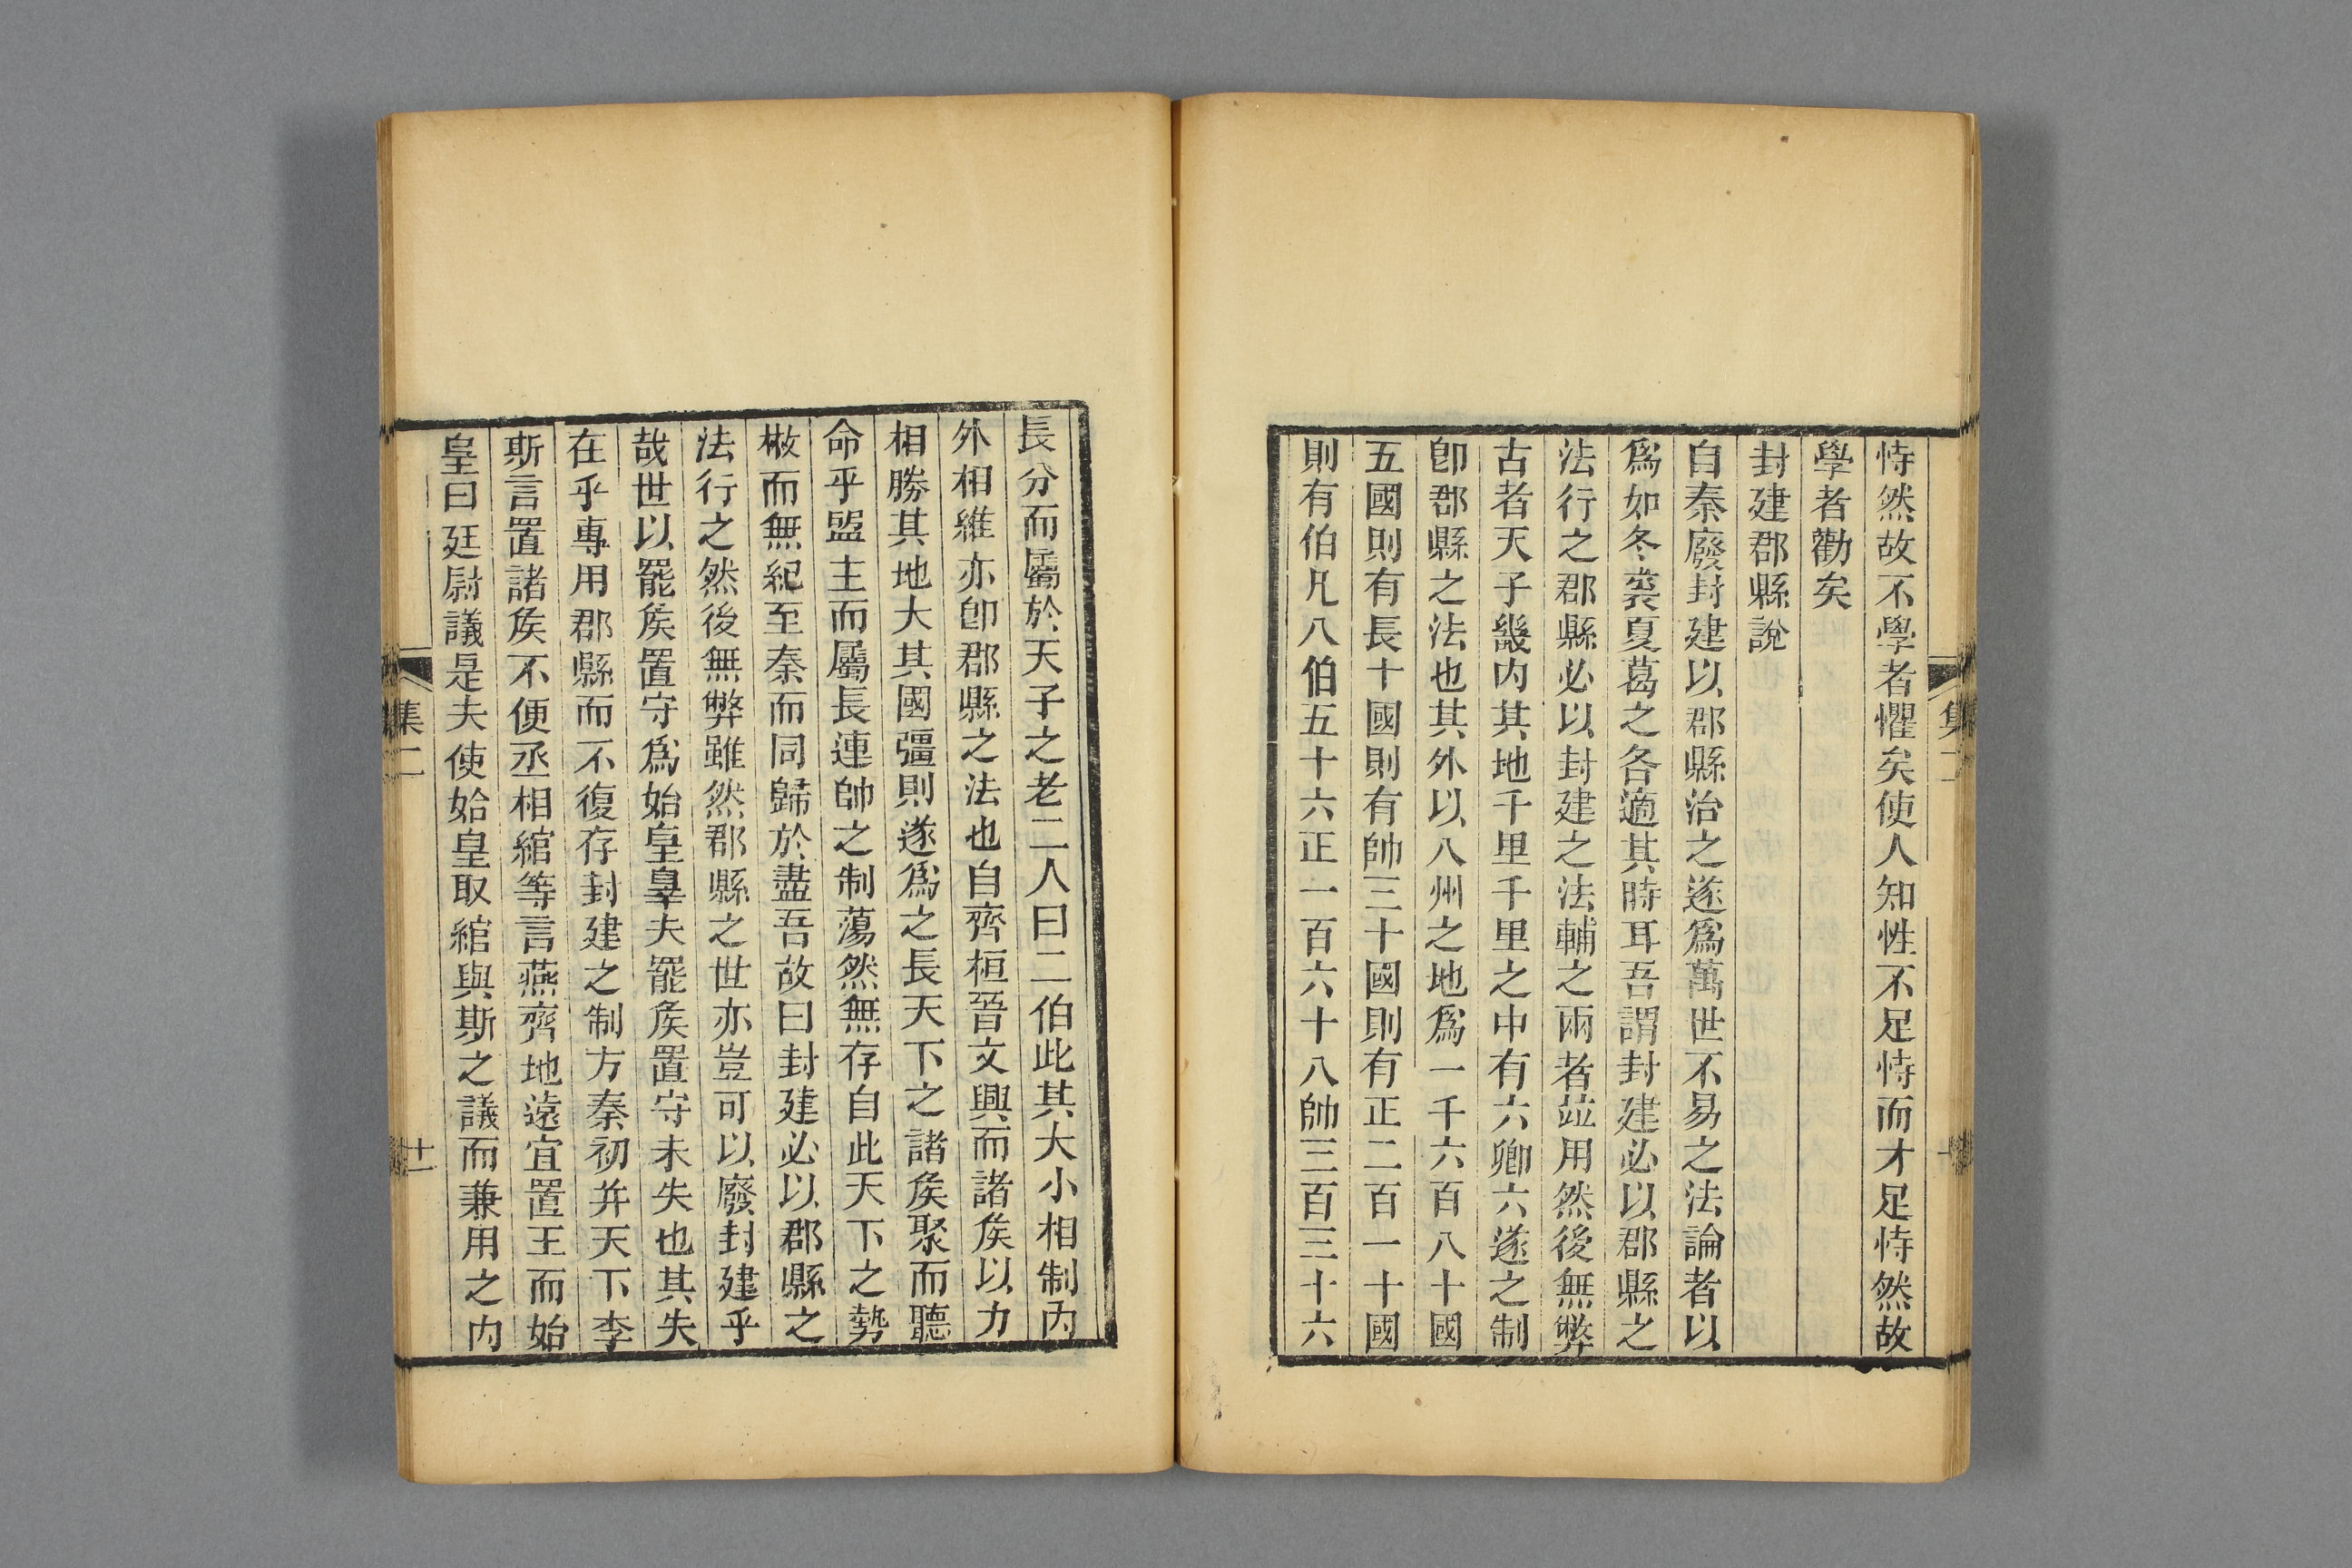 恃然故不學者懼矣使人知性不足恃而才足恃然故
學者勸矣
封建郡縣說
自秦廢封建以郡縣治之遂爲萬世不易之法論者以
爲如冬裘夏葛之各適其時耳吾謂封建必以郡縣之
法行之郡縣必以封建之法輔之兩者並用然後無弊
古者天子畿内其地千里千里之中有六卿六遂之制
卽郡縣之法也其外以八州之地爲一千六百八十國
五國則有長十國則有帥三十國則有正二百一十國
則有伯凡八伯五十六正一百六十八帥三百三十六
長分而屬於天子之老二人曰二伯此其大小相制内
外相維亦卽郡縣之法也自齊桓晉文興而諸矦以力
相勝其地大其國彊則遂爲之長天下之諸矦聚而聽
命乎盟主而屬長連帥之制蕩然無存自此天下之勢
㪚而無紀至秦而同歸於盡吾故曰封建必以郡縣之
法行之然後無弊雖然郡縣之世亦豈可以廢封建乎
哉世以罷矦置守爲始皇辠夫罷矦置守未失也其失
在乎專用郡縣而不復存封建之制方秦初并天下李
斯言置諸矦不便丞相綰等言燕齊地遠宜置王而始
皇曰廷尉議是夫使始皇取綰與斯之議而兼用之内
集二
十一